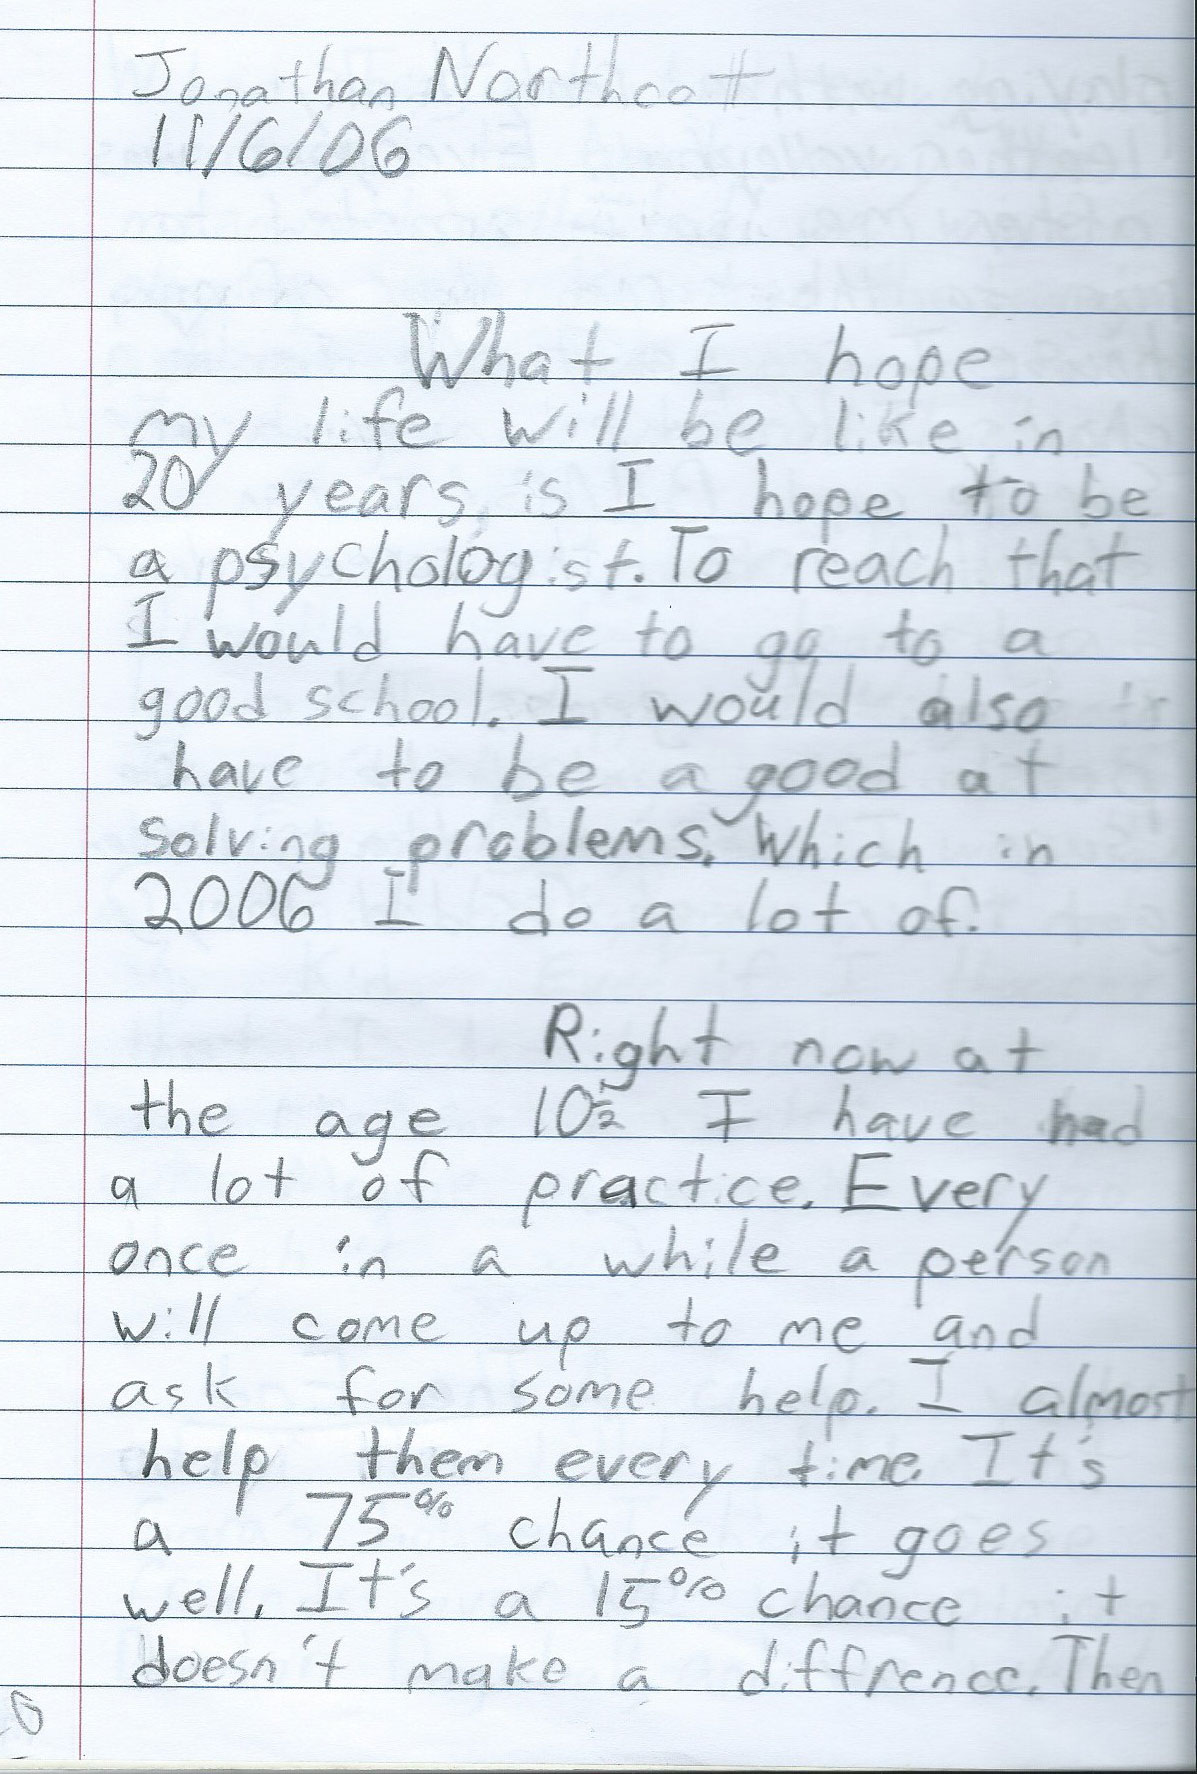 Jonathan Northcott
11/6/06
What I hope
my life will be like in
20 years, is I hope to be
a psychologist. To reach that
I would have to go to a
good school. I would also
have to be a good at
solving problems. Which in
2006 I do a lot of.
Right now at
the age 10½ I have had
a lot of practice. Every
once in a while a person
will come up to me and
ask for some help. I almost
help them every time. It's
a 75% chance it goes
well. It's a 15% chance it
doesn't make a diffrence. Then